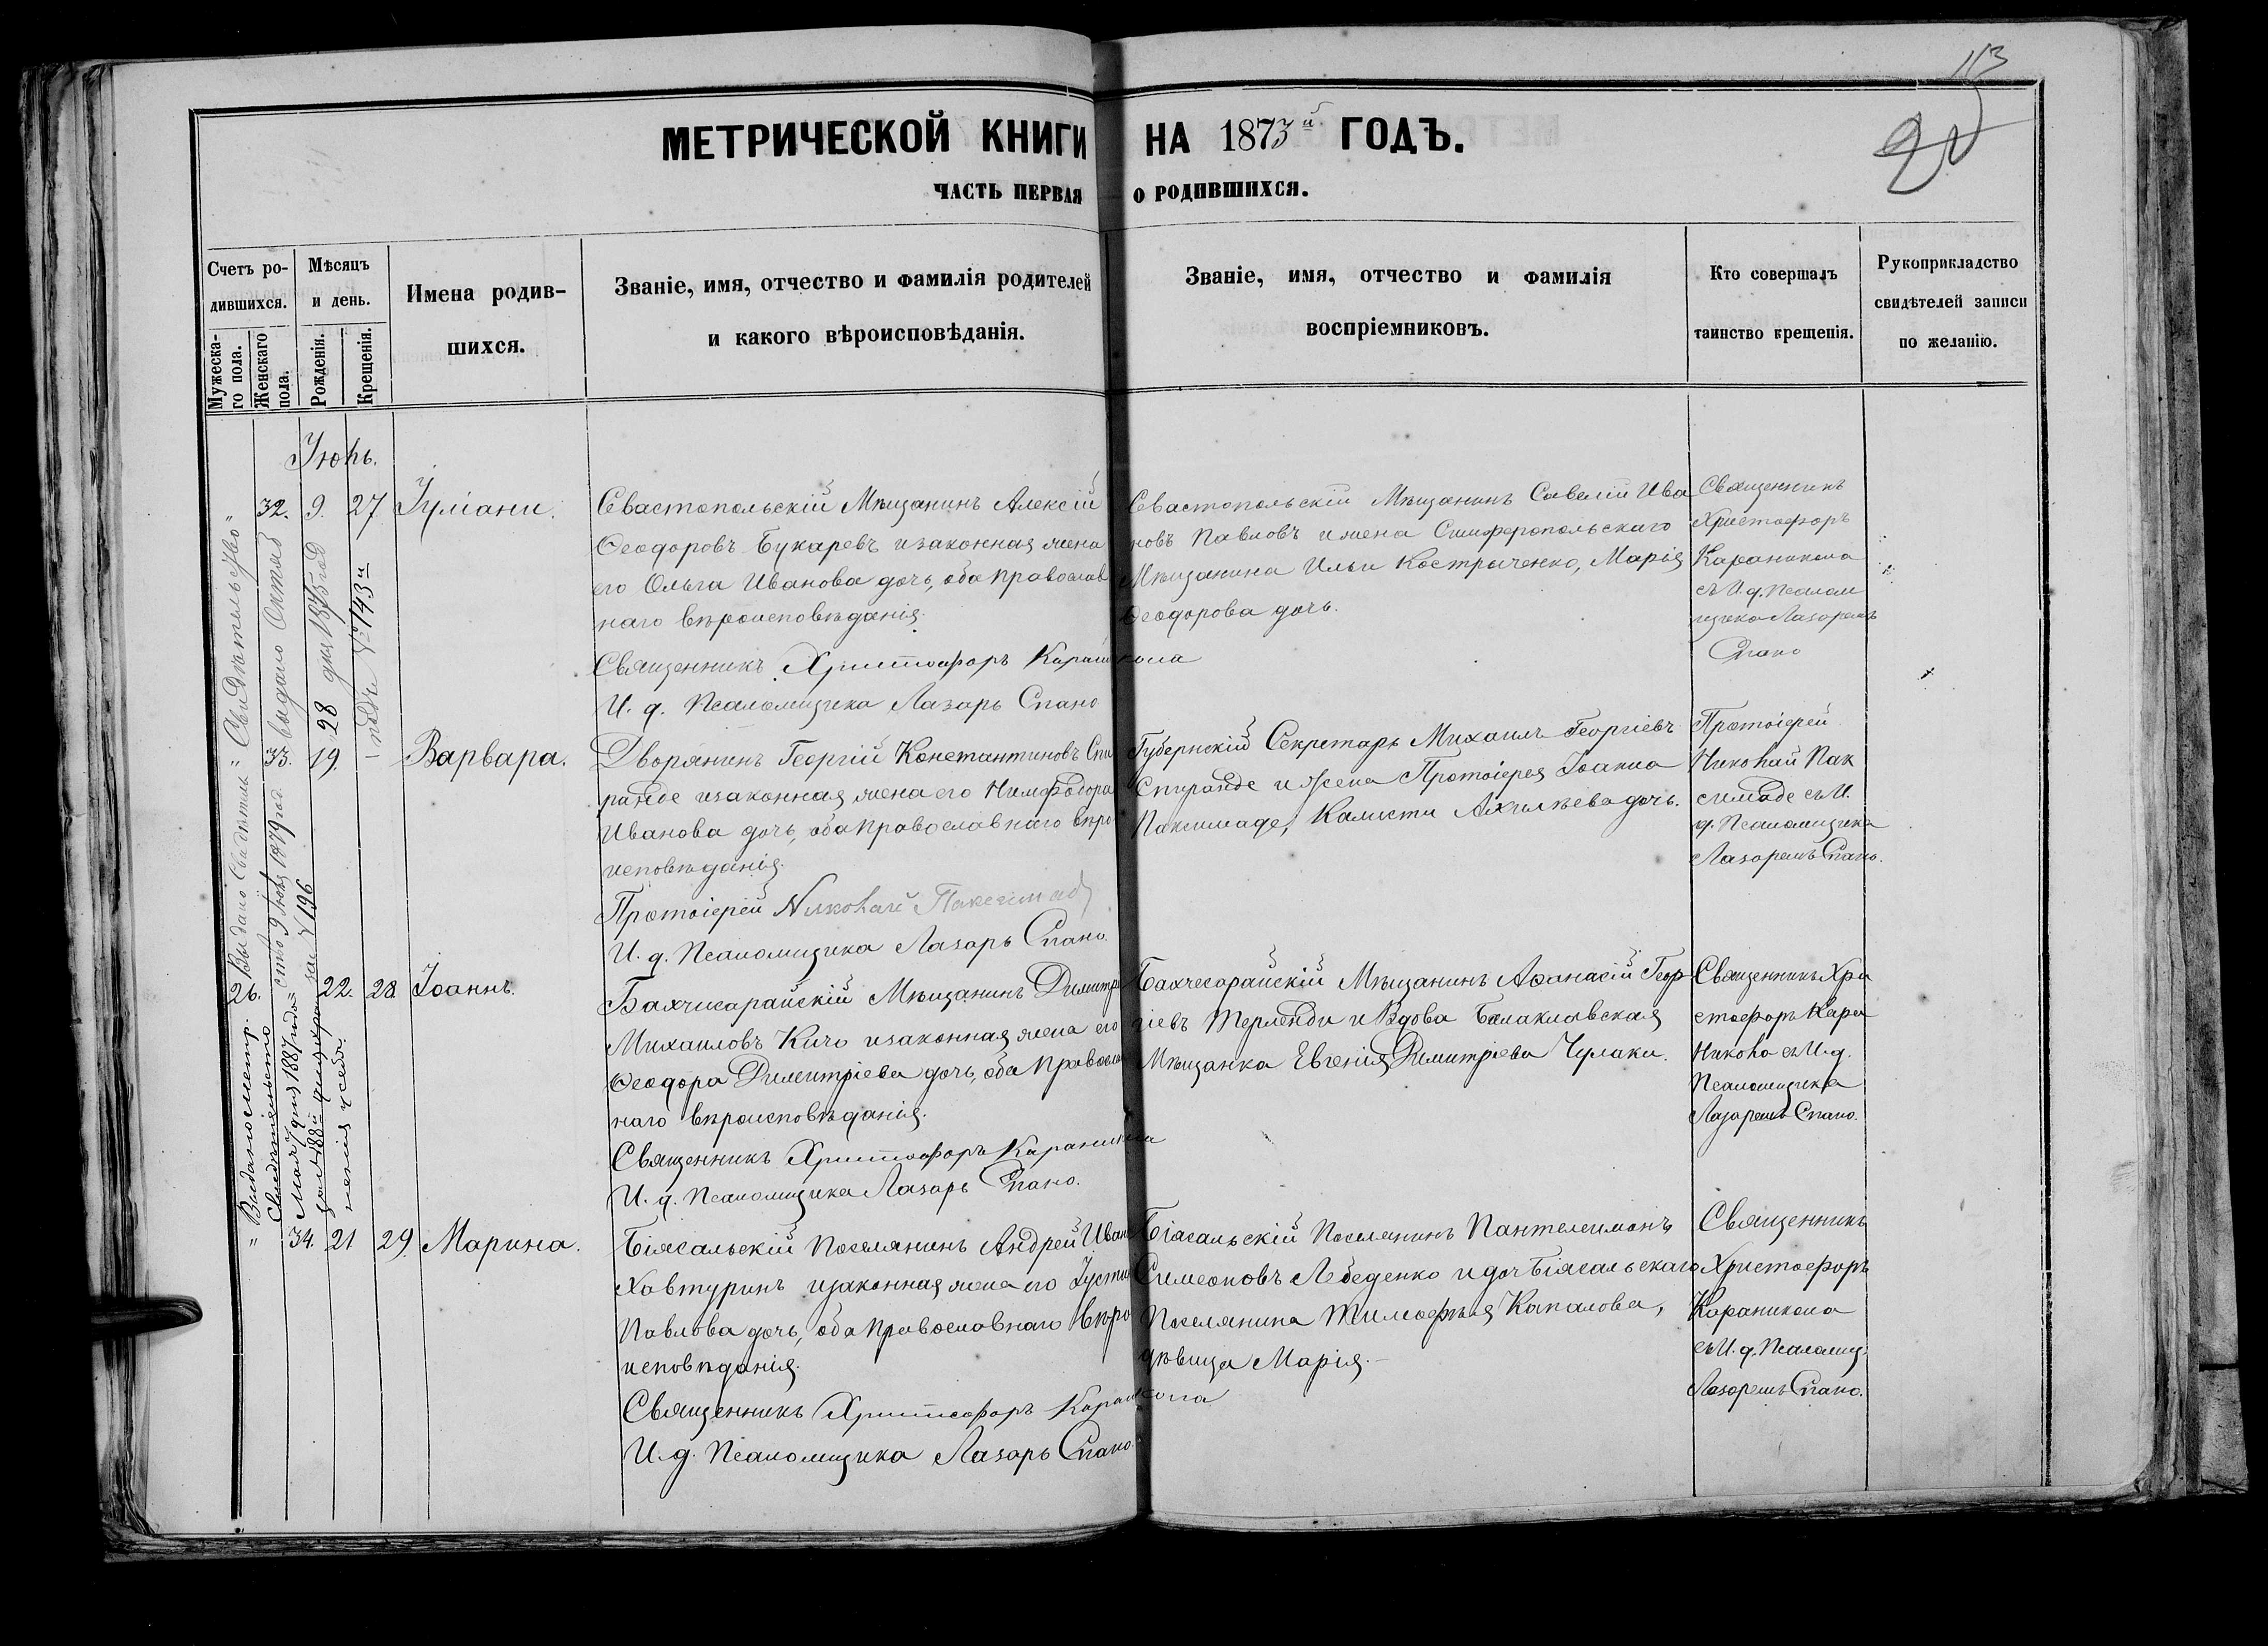 113
20
МЕТРИЧЕСКОЙ КНИГИ НА 1873й ГОДЪ.
ЧАСТЬ ПЕРВАЯ О РОДИВШИХСЯ.
Счетъ ро-
дившихся.
Мужеска-
го пола.
Женскаго
пола.
Мѣсяцъ
и день.
Рожденія.
Крещенія.
Имена родив-
шихся.
Званіе, имя, отчество и фамилія родителей
и какого вѣроисповѣданія.
Званіе, имя, отчество и фамилія
воспріемниковъ.
Кто совершалъ
таинство крещенія.
Рукоприкладство
свидѣтелей записи
по желанію.
Іюнь.
" 32. 9. 27 Іуліани.
Севастопольскій Мѣщанинъ Алексій
Ѳеодоровъ Букаревъ и законная жена
его Ольга Иванова дочь, оба православ
наго вѣроисповѣданія.
Священникъ Христофоръ Караникола
И. д. Псаломщика Лазарь Спано
Севастопольскій Мѣщанинъ Савелій Ива
новъ Павловъ и жена Симферопольскаго
Мѣщанина Ильи Костриченко, Марія
Ѳеодорова дочь.
Священникъ
Христофоръ
Караникола
съ И. д. Псалом
щика Лазаремъ
Спано
Свидѣтельство
выдано Октяб
28 дня 1875 год
подъ № 143й
33. 19. – Варвара.
Дворянинъ Георгій Константиновъ Спи
ранде и законная жена его Нимфодора
Иванова дочь, оба православнаго вѣро
исповѣданія.
Протоіерей Николай Паксимад
И. д. Псаломщика Лазарь Спано.
Губернскій Секретарь Михаилъ Георгіевъ
Спиранде и Жена Протоіерея Іоанна
Паксимаде, Калисти Ахилѣева дочь.
Протоіерей
Николай Пак
симаде съ И.
д. Псаломщика
Лазаремъ Спано.
Выдано Свидѣтель
ство 9 Іюня 1879 год.
за № 196
26. 22. 28 Іоаннъ.
Бахчисарайскій Мѣщанинъ Димитрі
Михаиловъ Кичо и законная жена его
Ѳеодора Димитріева дочь, оба Православ
наго вѣроисповѣданія.
Священникъ Христофоръ Караникола
И. д. Псаломщика Лазарь Спано.
Бахчесарайскій Мѣщанинъ Аѳанасій Геор
гіевъ Терленди и Вдова Балаклавская
Мѣщанка Евгенія Димитріева Чулаки.
Священникъ Хри
стофоръ Кара
Никола съ И. д.
Псаломщика
Лазаремъ Спано.
Выдано метр.
Свидѣтельство
Мая 7 дня 1887 года
" 34. 21 29. Марина.
Біясальскій Поселянинъ Андрей Иван
Хавтуринъ и законная жена его Іусти
Павлова дочь, оба Православнаго Вѣро
исповѣданія.
Священникъ Христофоръ Караникола
И. д. Псаломщика Лазарь Спано.
Біясальскій Поселянинъ Пантелеимонъ
Симеоновъ Лебеденко и дочь Біясальскаго
Поселянина Тимофѣя Капалова,
дѣвица Марія. –
Священникъ
Христофоръ
Караникола
съ И. д. Псаломщ.
Лазаремъ Спано.